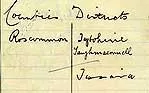 Counties Districts
Roscommon Tybohine
Taughmaconnell
Tussava